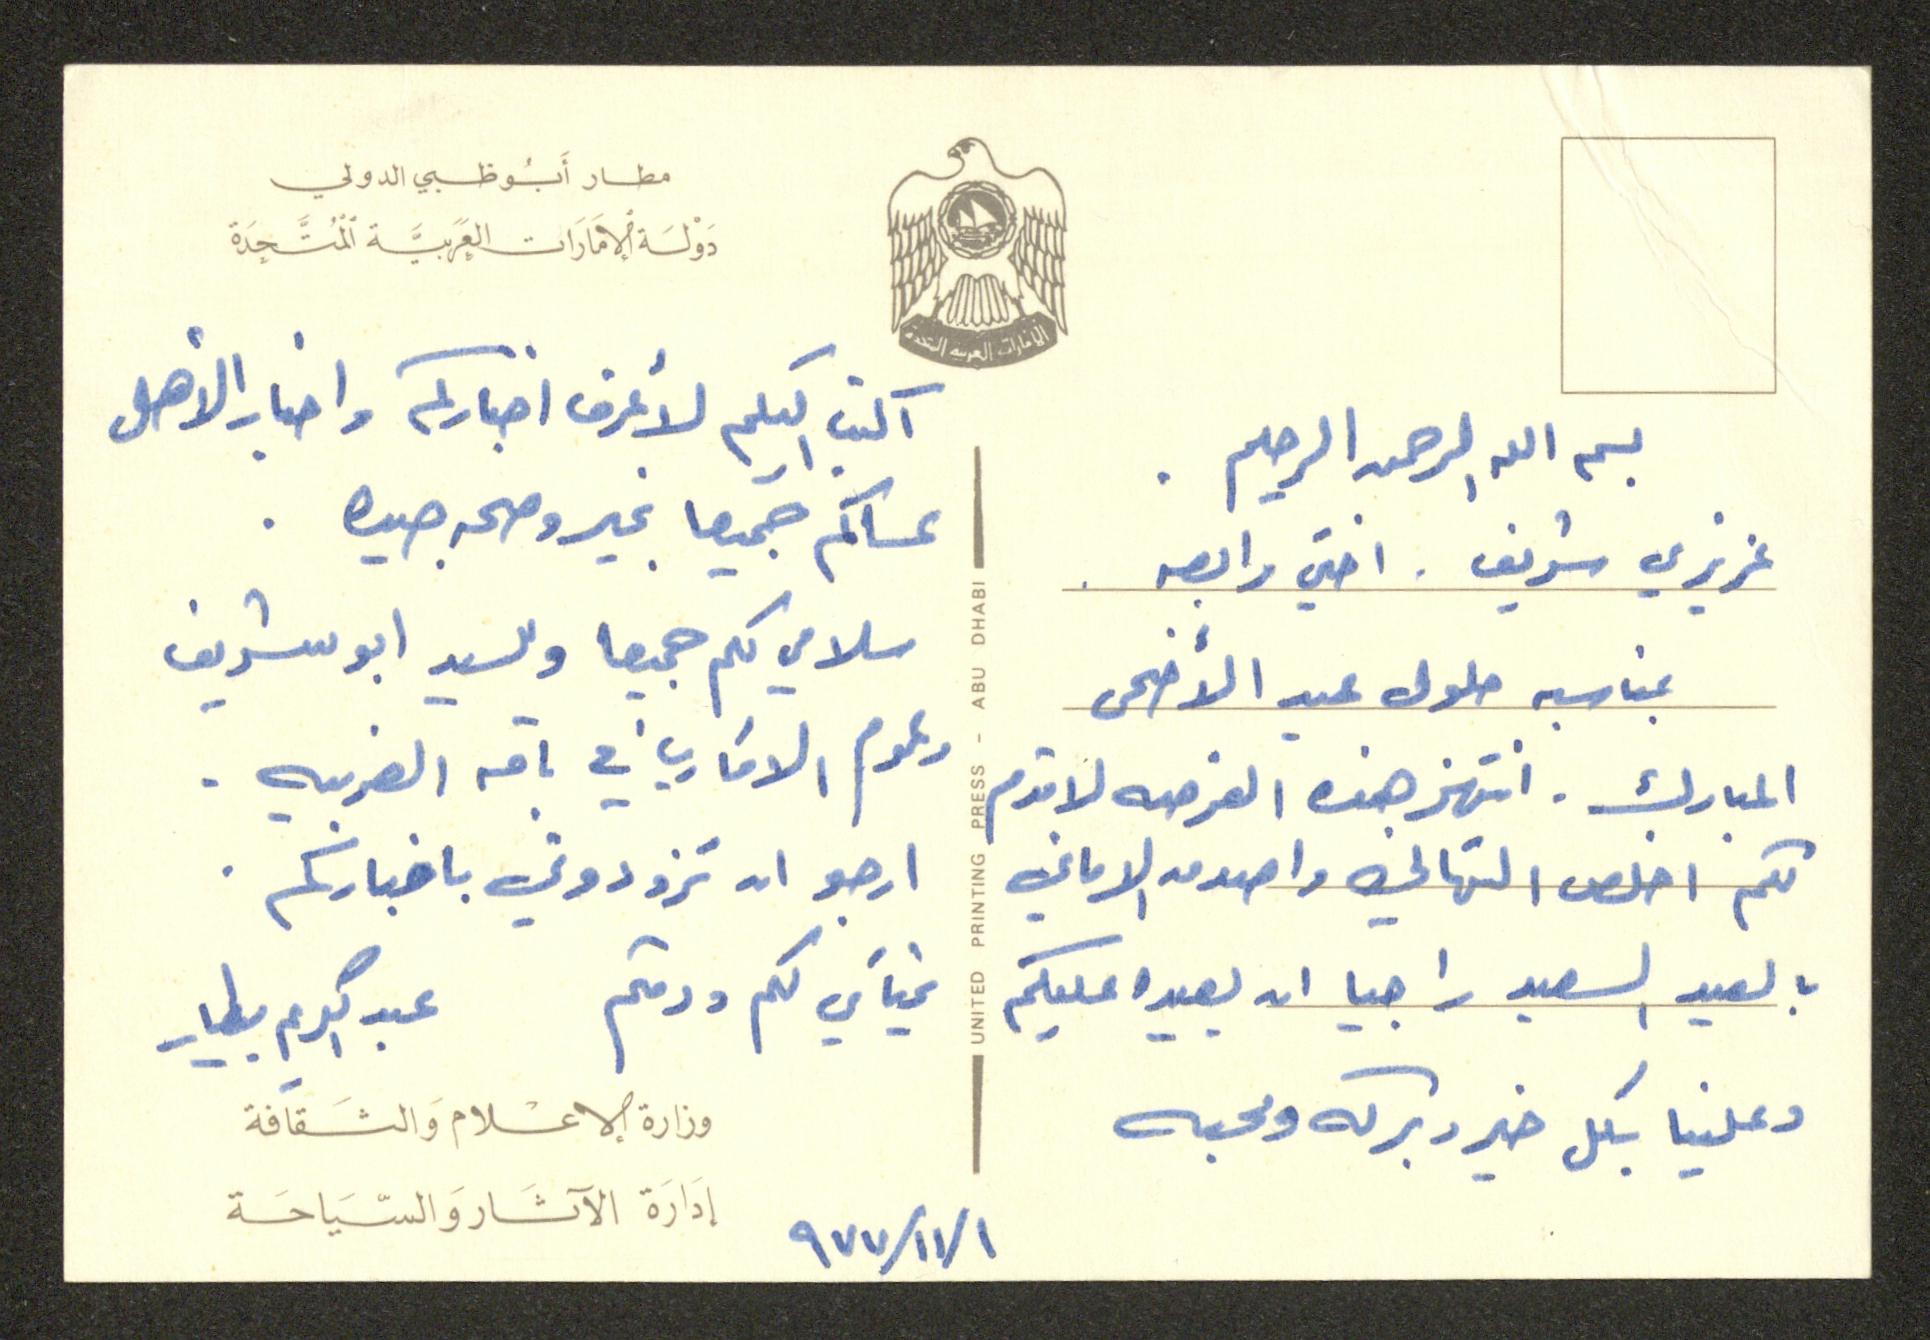 مطار أبوظبي الدولي
دولة الإمارات العربية المتحدة
الإمارات العربية المتحدة
بسم الله الرحمن الرحيم .
عزيزي شريف . اختي رابعه .
بمناسبه حلول عيد الأضحى
المبارك . انتهز هذه الفرصه لاقدم
لكم اخلص التهاني واصدق الاماني
بالعيد السعيد راجيا ان يعيده عليكم
وعلينا بكل خير وبركه ومحبه
اكتب اليكم لأعرف اخباركم واخبار الأهل
عساكم جميعا بخير وصحه جيده .
سلامي لكم جميعا وللسيد ابو شريف
وعموم الاقارب في باقه الغربيه .
ارجو ان تزودوني باخباركم .
تمنياتي لكم ودمتم
عبد الكريم
وزارة الإعلام والثقافة
إدارة الآثار والسياحة
٩٧٧/١١/١
UNITED PRINTING PRESS - ABU DHABI